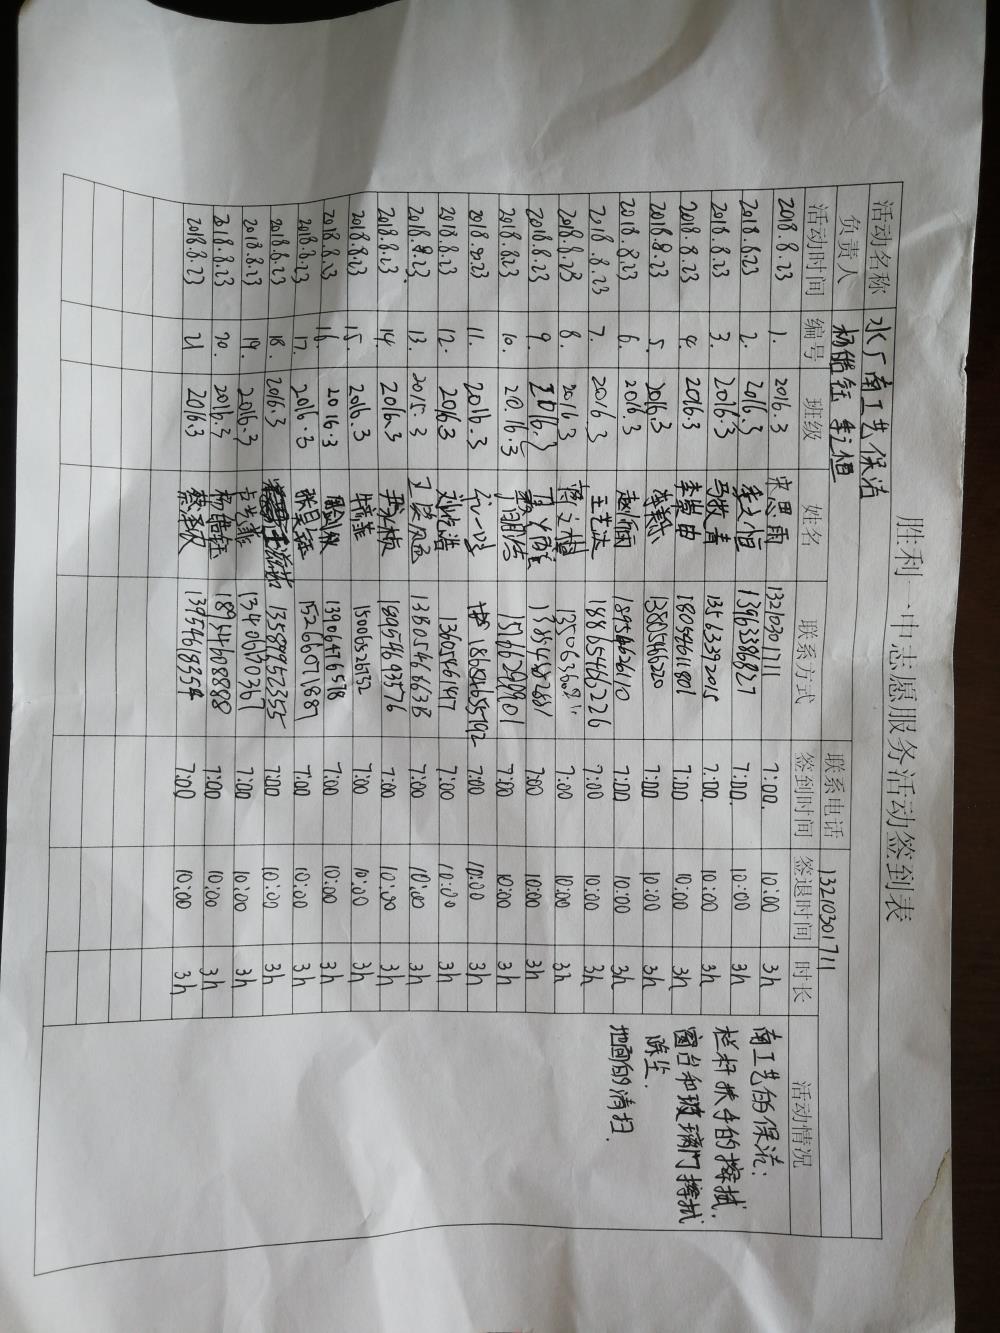 胜利一中志愿服务活动签到表
活动名称 水厂南工艺保洁
负责人 杨皓钰 李文恒 联系电话 13210301711
活动时间 编号 班级 姓名 联系方式 签到时间 签退时间 时长 活动情况
2018.8.23 1. 2016.3 宋思雨 13210301711 7:00. 10:00 3h 南工艺的保洁:
2018.8.23 2. 2016.3 李文恒 13963386827 7:00. 10:00 3h 栏杆扶手的擦拭.
2018.8.23 3. 2016.3 马敬青 13563392015 7:00. 10:00 3h 窗台和玻璃门擦拭
2018.8.23 4. 2016.3 18054611801 7:00 10:00 3h 除尘.
2018.8.23 5. 2016.3 13805466220 7:00 10:00 3h 地面的清扫.
2018.8.23 6. 2016.3 赵雨 18956626110 7:00 10:00 3h
2018.8.23 7. 2016.3 王艺达 18865466226 7:00 10:00 3h
2018.8.23 8. 2016.3 7:00 10:00 3h
2018.8.23 9. 2016.3 7:00 10:00 3h
2018.8.23 10. 2016.3 15166299901 7:00 10:00 3h
2018.8.23 11. 2016.3 18684655192 7:00 10:00 3h
2018.8.23 12. 2016.3 刘屹浩 13607466147 7:00 10:00 3h
2018.8.23 13. 2015.3 13305466638 7:00 10:00 3h
2018.8.23 14. 2016.3 18954693576 7:00 10:00 3h
2018.8.23 15. 2016.3 15006526732 7:00 10:00 3h
2018.8.23 16. 2016.3 13906476578 7:00 10:00 3h
2018.8.23 17. 2016.3 张昊钰 15266071887 7:00 10:00 3h
2018.8.23 18. 2016.3 13589952355 7:00 10:00 3h
2018.8.23 19. 2016.3 13406170367 7:00 10:00 3h
2018.8.23 20. 2016.3 杨皓钰 18954608888 7:00 10:00 3h
2018.8.23 21 2016.3 13954618354 7:00 10:00 3h